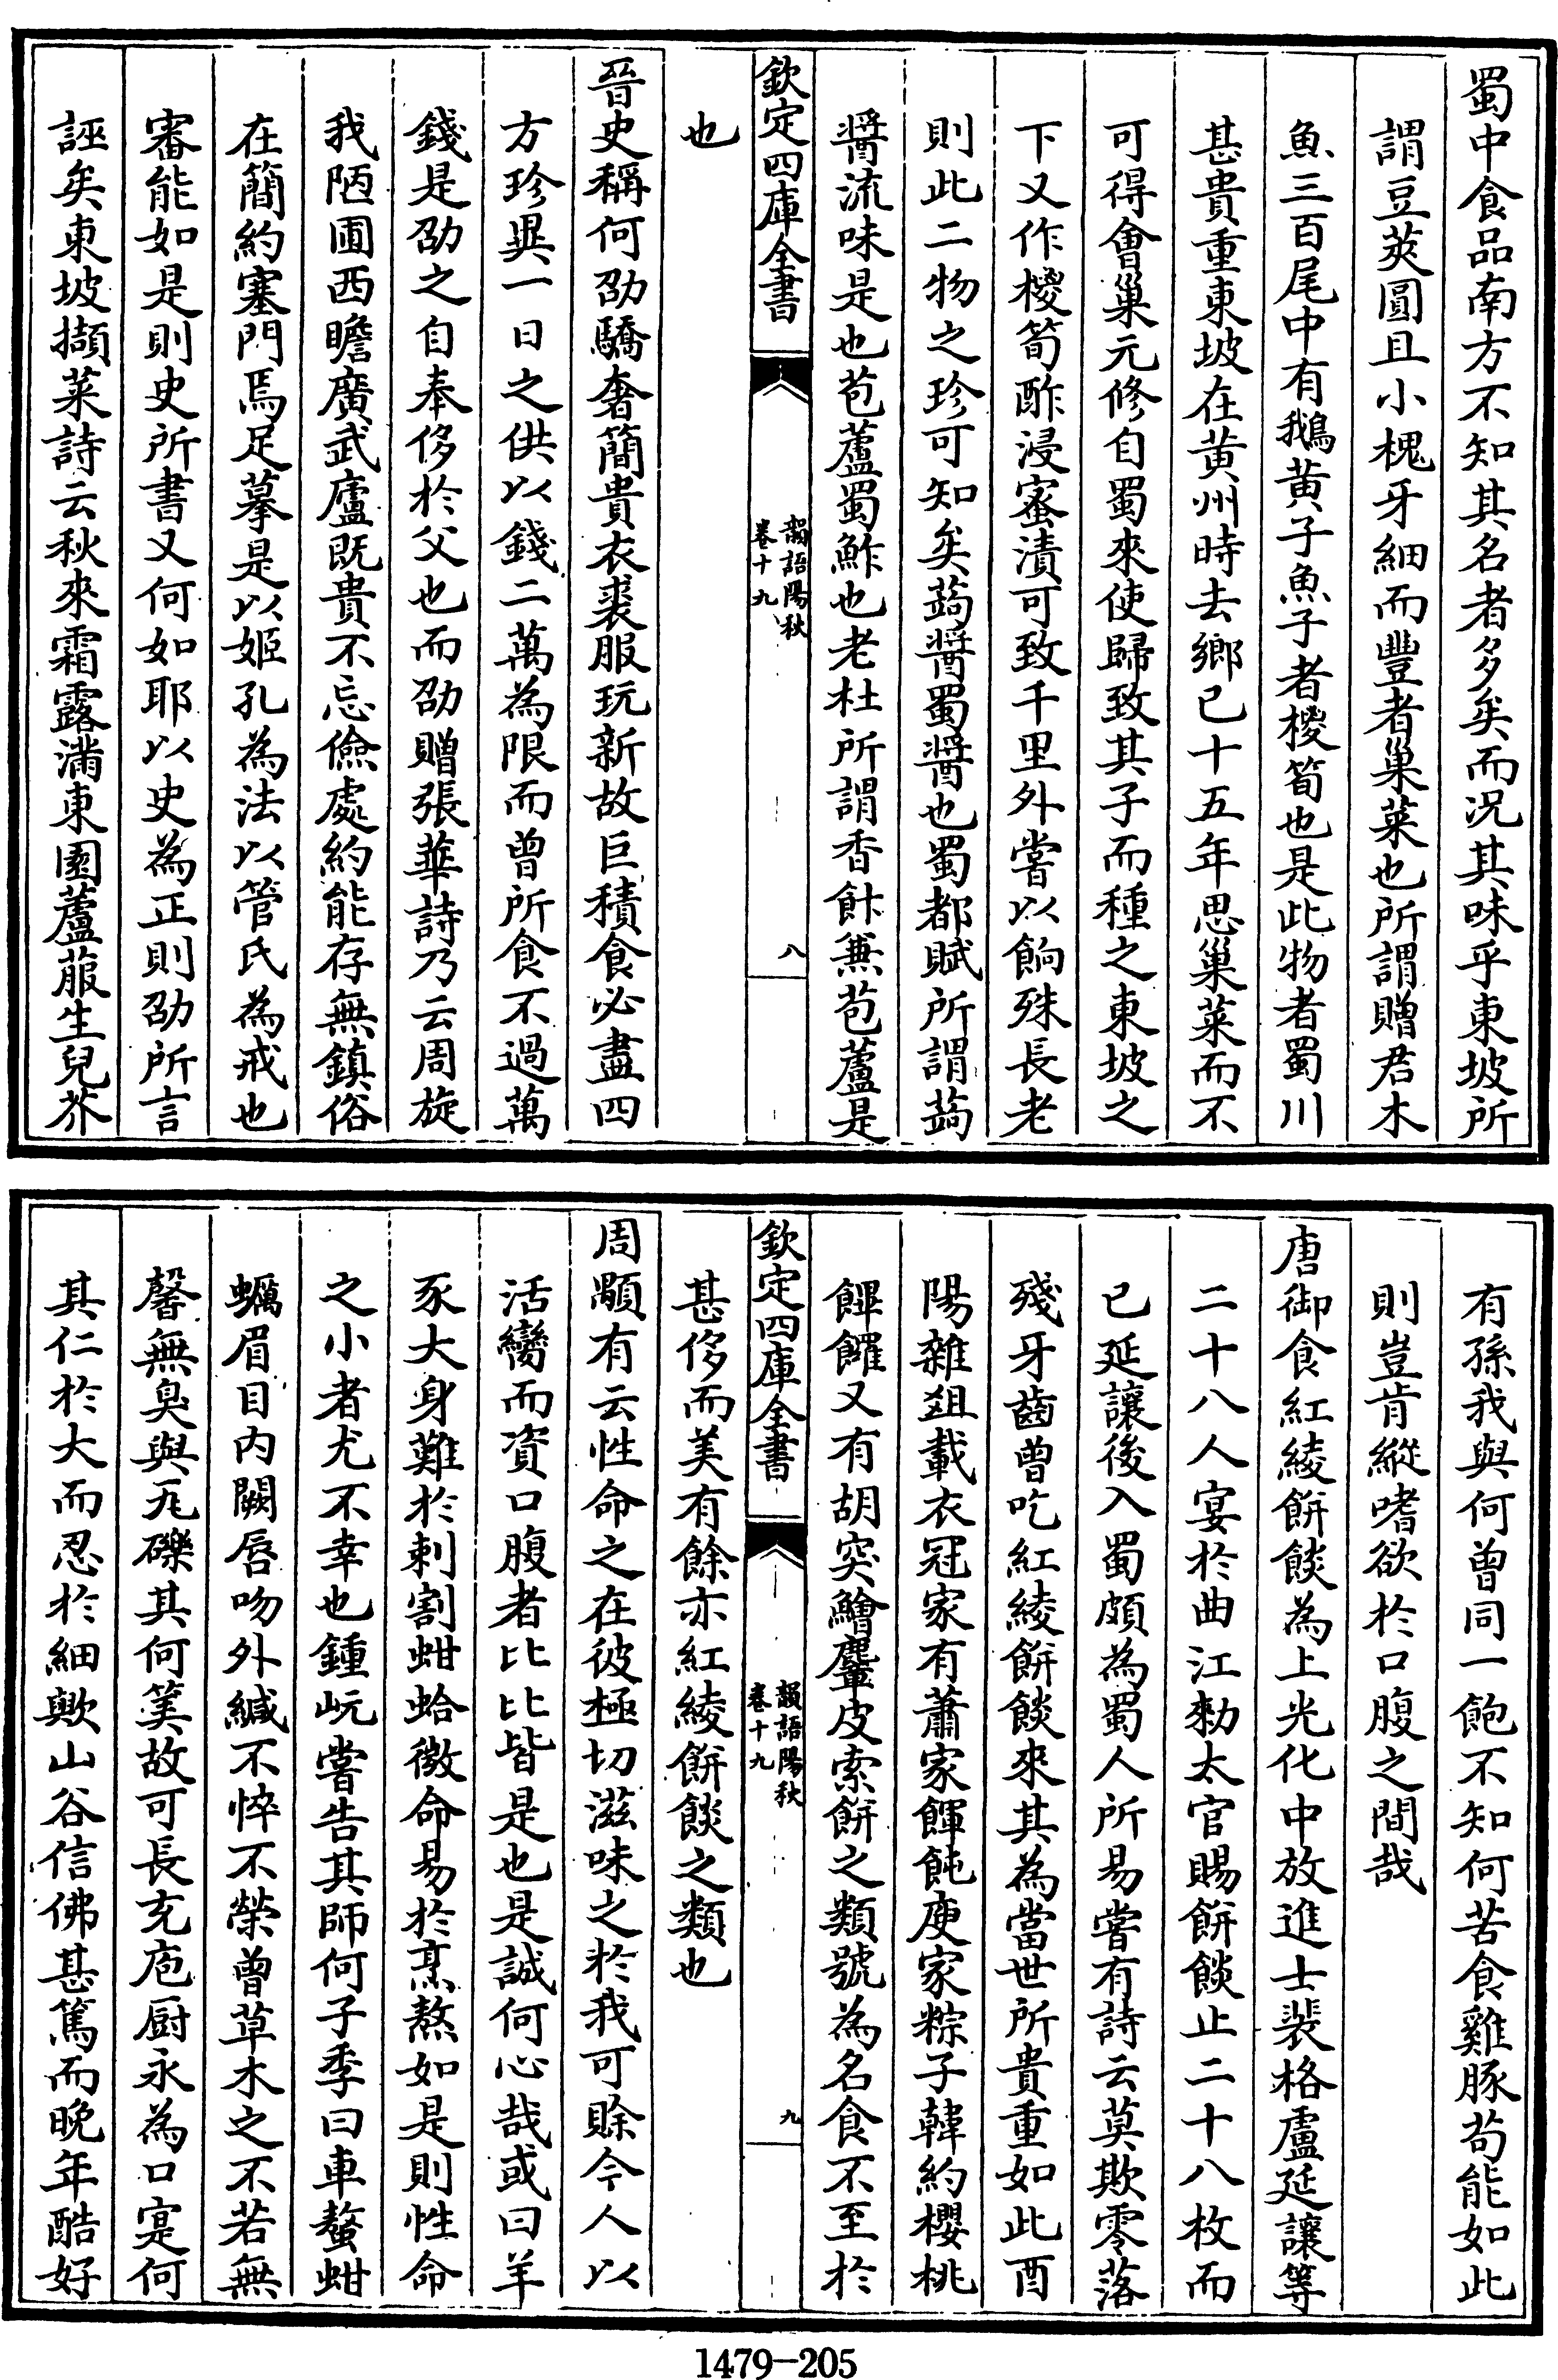 蜀中食品南方不知其名者多矣而况其味乎東坡所
謂豆莢圓且小槐牙細而豐者巢菜也所謂贈君木
魚三百尾中有鵝黄子魚子者椶筍也是此物者蜀川
甚貴重東坡在黄州時去鄉已十五年思巢菜而不
可得會巢元修自蜀來使歸致其子而種之東坡之
下又作椶筍酢浸蜜漬可致千里外嘗以餉殊長老
則此二物之珍可知矣蒟醬蜀醬也蜀都賦所謂蒟
醬流味是也苞蘆蜀鮓也老杜所謂香飰兼苞蘆是
欽定四庫全書
韻語陽秋
卷十九
八
也
晉史稱何劭驕奢簡貴衣裘服玩新故巨積食必盡四
方珍異一日之供以錢二萬為限而曾所食不過萬
錢是劭之自奉侈於父也而劭贈張華詩乃云周旋
我陋圃西瞻廣武廬既貴不忘儉處約能存無鎮俗
在簡約塞門焉足摹是以姬孔為法以管氏為戒也
審能如是則史所書又何如耶以史為正則劭所言
誣矣東坡擷菜詩云秋來霜露滿東園蘆菔生兒芥
有孫我與何曾同一飽不知何苦食雞豚茍能如此
則豈肯縱嗜欲於口腹之間哉
唐御食紅綾餅餤為上光化中放進士裴格盧延讓等
二十八人宴於曲江勑太官賜餅餤止二十八枚而
已延讓後入蜀頗為蜀人所易嘗有詩云莫欺零落
殘牙齒曾吃紅綾餅餤來其為當世所貴重如此酉
陽雜爼載衣冠家有蕭家餫飩庾家粽子韓約櫻桃
饆饠又有胡突鱠麞皮索餅之類號為名食不至於
欽定四庫全書
韻語陽秋
卷十九
九
甚侈而美有餘亦紅綾餅餤之類也
周顒有云性命之在彼極切滋味之於我可賖今人以
活臠而資口腹者比比皆是也是誠何心哉或曰羊
豕大身難於刺割蚶蛤微命易於烹熬如是則性命
之小者尤不幸也鍾岏嘗告其師何子季曰車螯蚶
蠣眉目内闕唇吻外緘不悴不榮曾草木之不若無
馨無臭與瓦礫其何筭故可長充庖厨永為口寔何
其仁於大而忍於細歟山谷信佛甚篤而晚年酷好
1479-205